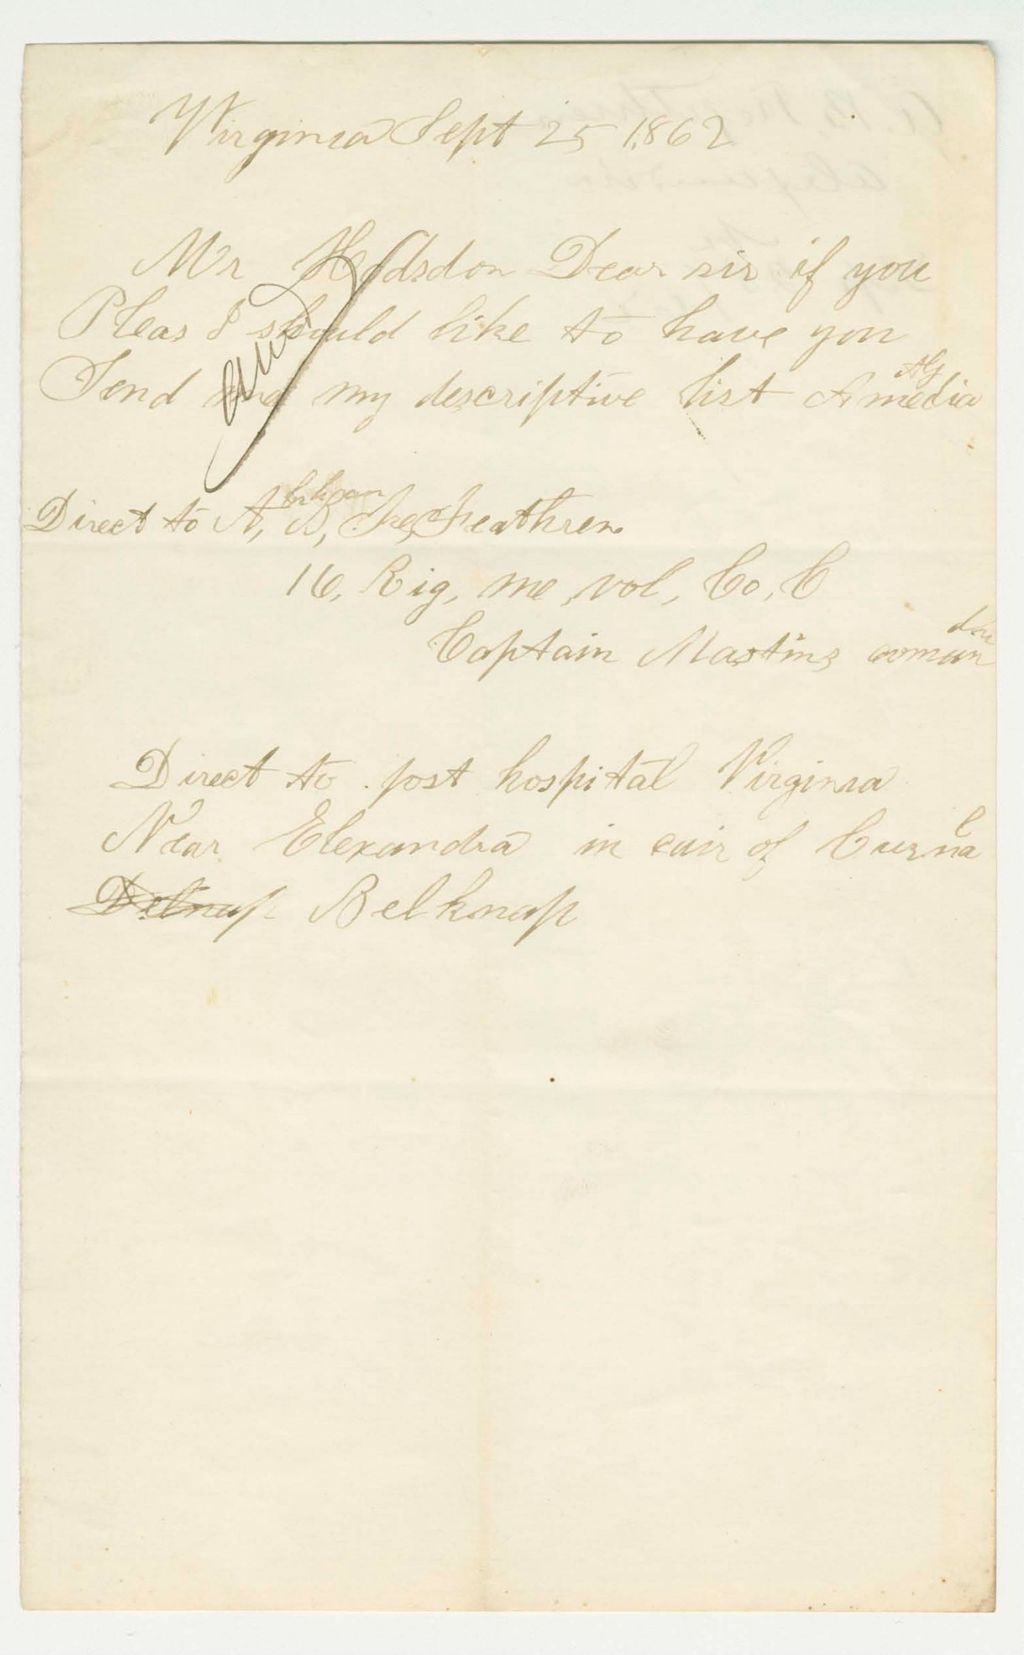 Virginia Sept 25 1862
Mr Hodsdon Dear sir if you
Pleas I should like to have you
Send me my descriptive list Amedia
tly
Direct to A, B,
16, Rig, me, vol, Co, C
Captain Mastins comman
den
Direct to post hospital Virginia
Near Elexandra in cair of Curna
l
Belknap